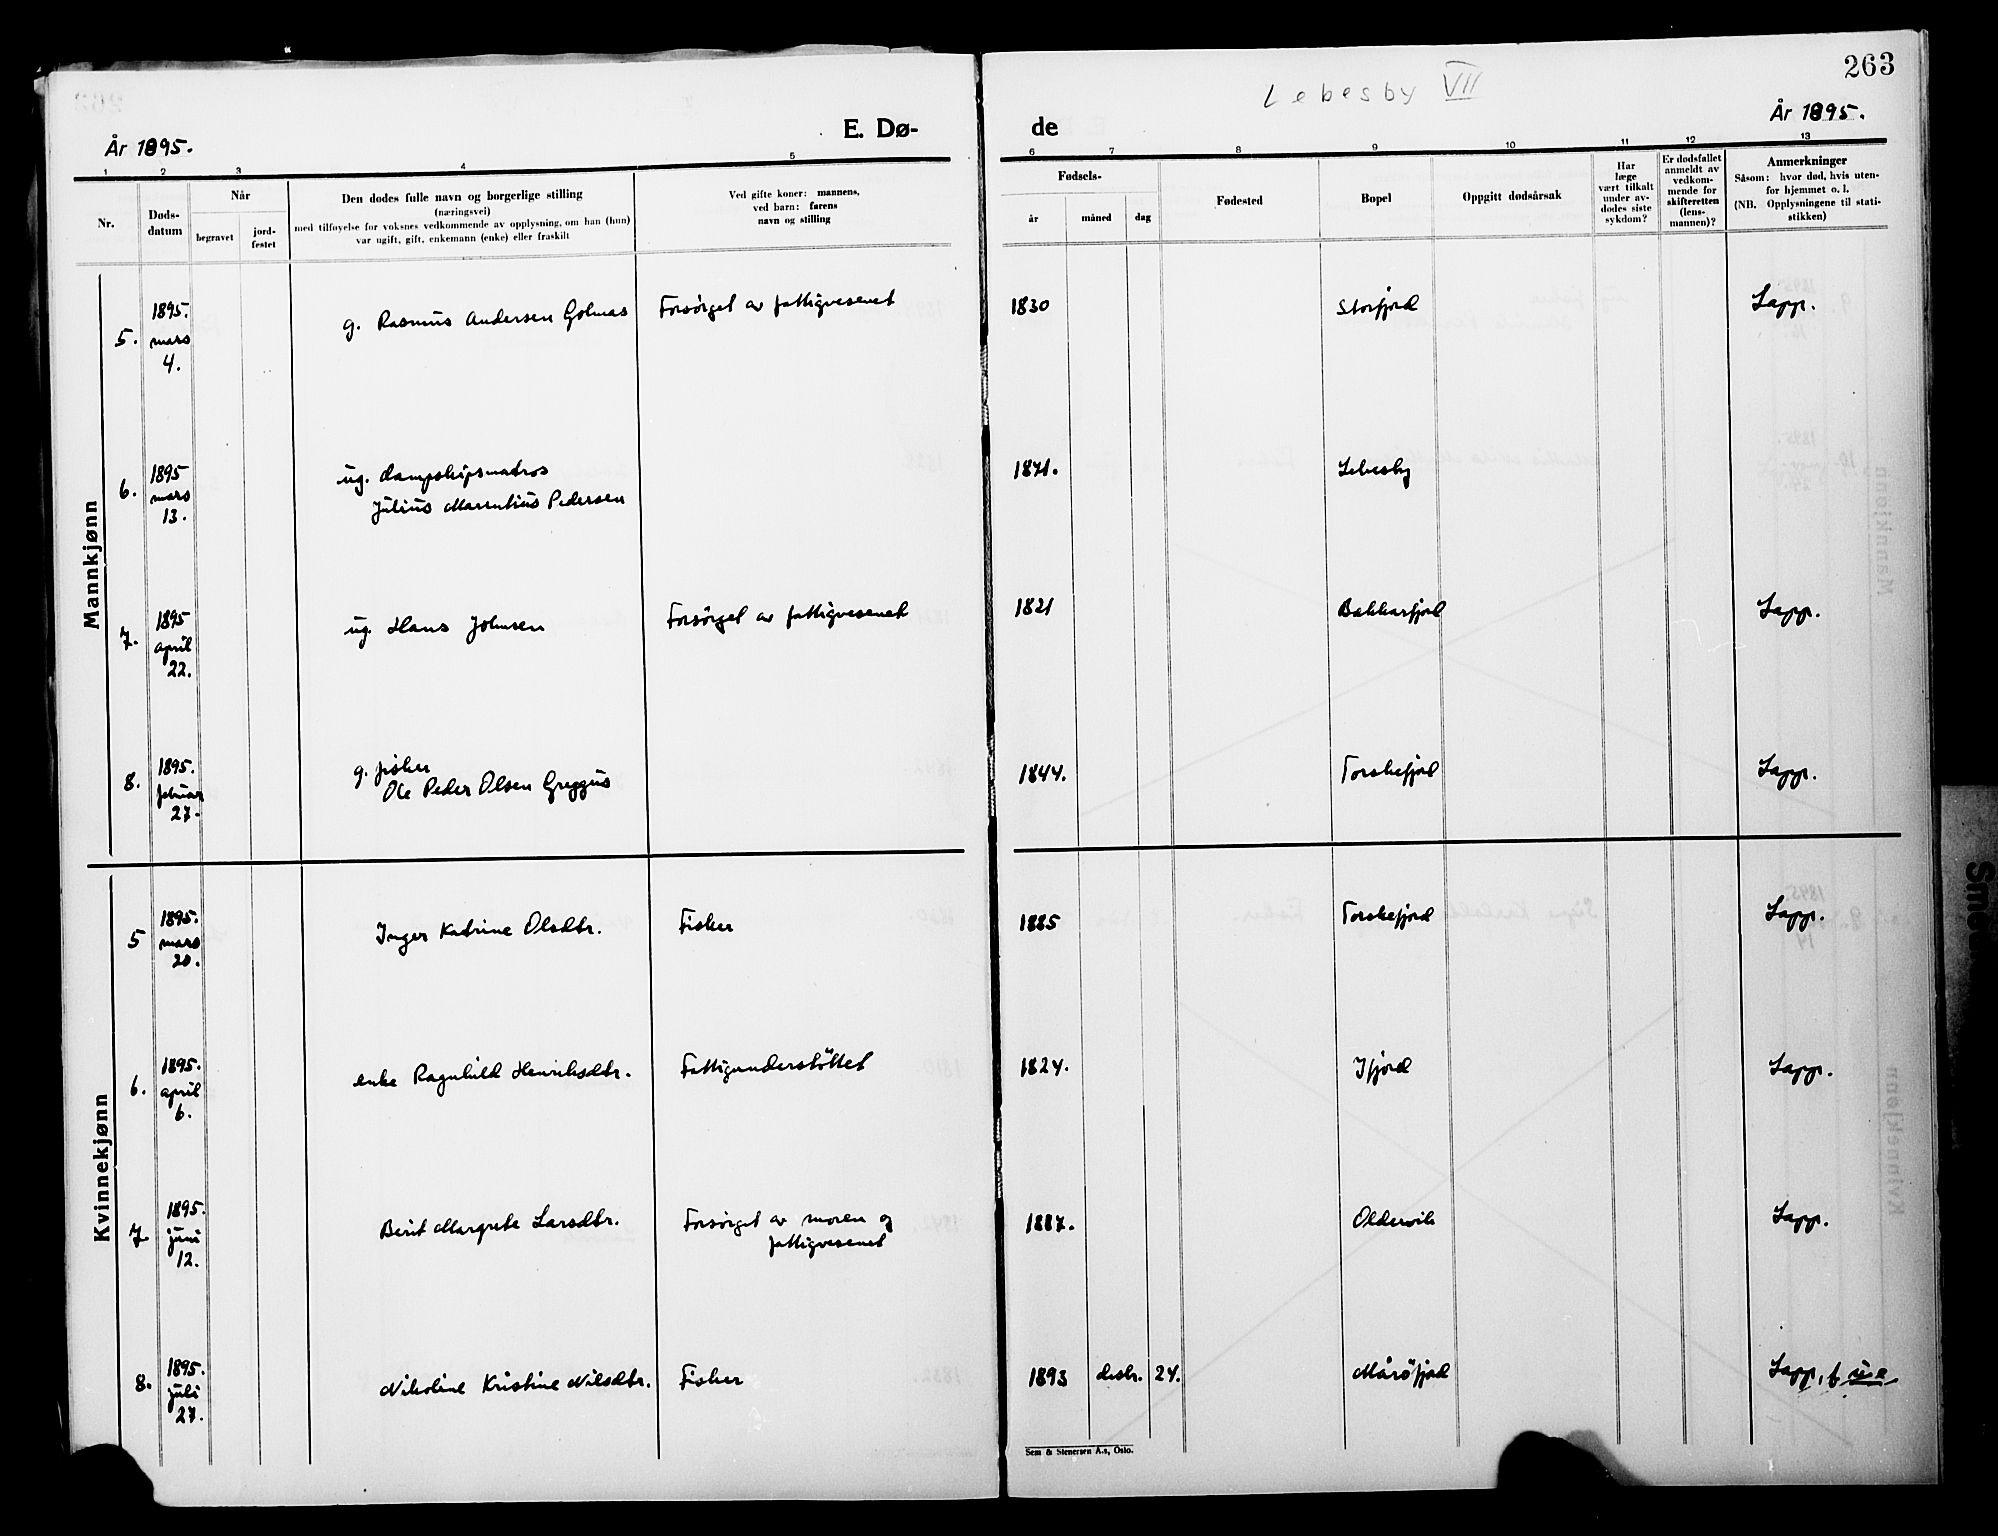 263
Lebesby VII
År 1895.
E. Dø-
de
År 1895.
1 2 3 4 5 6 7 8 9 10 11 12 13
Nr.
Døds-
datum
Når
begravet
jord-
festet
Den dødes fulle navn og borgerlige stilling
(næringsvei)
med tilføyelse for voksnes vedkommende av opplysning, om han (hun)
var ugift, gift, enkemann (enke) eller fraskilt
Ved gifte koner: mannens,
ved barn: farens
navn og stilling
Fødsels-
år
måned
dag
Fødested
Bopel
Oppgitt dødsårsak
Har
læge
vært tilkalt
under av-
dødes siste
sykdom?
Er dødsfallet
anmeldt av
vedkom-
mende for
skifteretten
(lens-
mannen)?
Anmerkninger
Såsom: hvor død, hvis uten-
for hjemmet o. l.
(NB. Opplysningene til stati-
stikken)
Mannkjønn
5.
1895.
mars
4.
g. Rasmus Andersen Golmas
Forsørget av fattigvesenet
1830
Storfjord
Lapp.
6.
1895
mars
13.
ug. dampskipsmatros
Julius Marentius Pedersen
1871.
Lebesby
7.
1895
april
22.
ug. Hans Johnsen
Forsørget av fattigvesenet
1821
Bakkarfjord
Lapp.
8.
1895.
februar
27.
g. fisker
Ole Peder Olsen Greggus
1844.
Torskefjord
Lapp.
Kvinnekjønn
5
1895.
mars
20.
Inger Katrine Olsdtr.
Fisker
1885
Torskefjord
Lapp.
6.
1895.
april
6.
enke Ragnhild Henriksdtr.
Fattigunderstöttet
1824.
Ifjord
Lapp.
7.
1895.
juni
12.
Berit Margrete Larsdtr.
Forsørget av moren og
fattigvesenet
1887.
Oldervik
Lapp.
8.
1895.
juli
27.
Nikoline Kristine Nilsdtr.
Fisker
1893
desbr.
24.
Mårøfjord
Lapp, f u.e.
Sem & Stenersen A.s, Oslo.